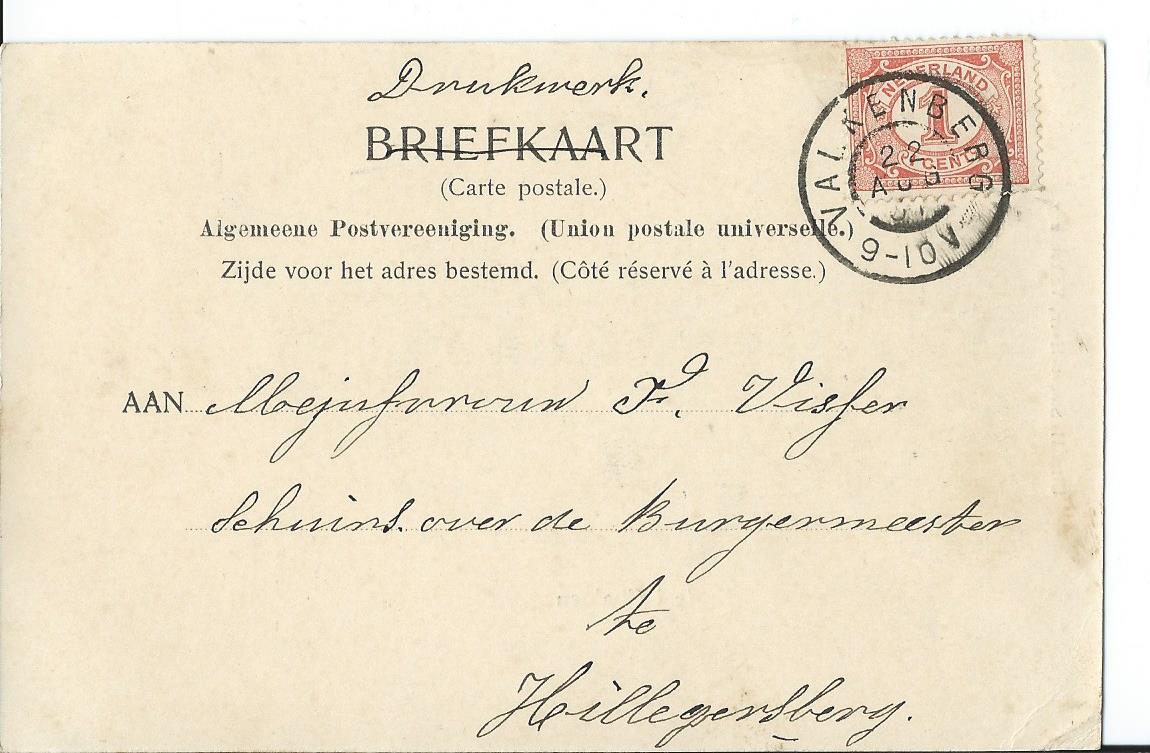 Drukwerk.
BRIEFKAART
(Carte postale.)
Algemeene Postvereeniging. (Union postale universelle.)
Zijde voor het adres bestemd. (Côté réservé à l'adresse.)
NEDERLAND
1
CENT
VALKENBERG
22
AUG
9-10V
AAN Mejufvrouw F. Visser
Schuins over de Burgermeester
te
Hillegersberg.